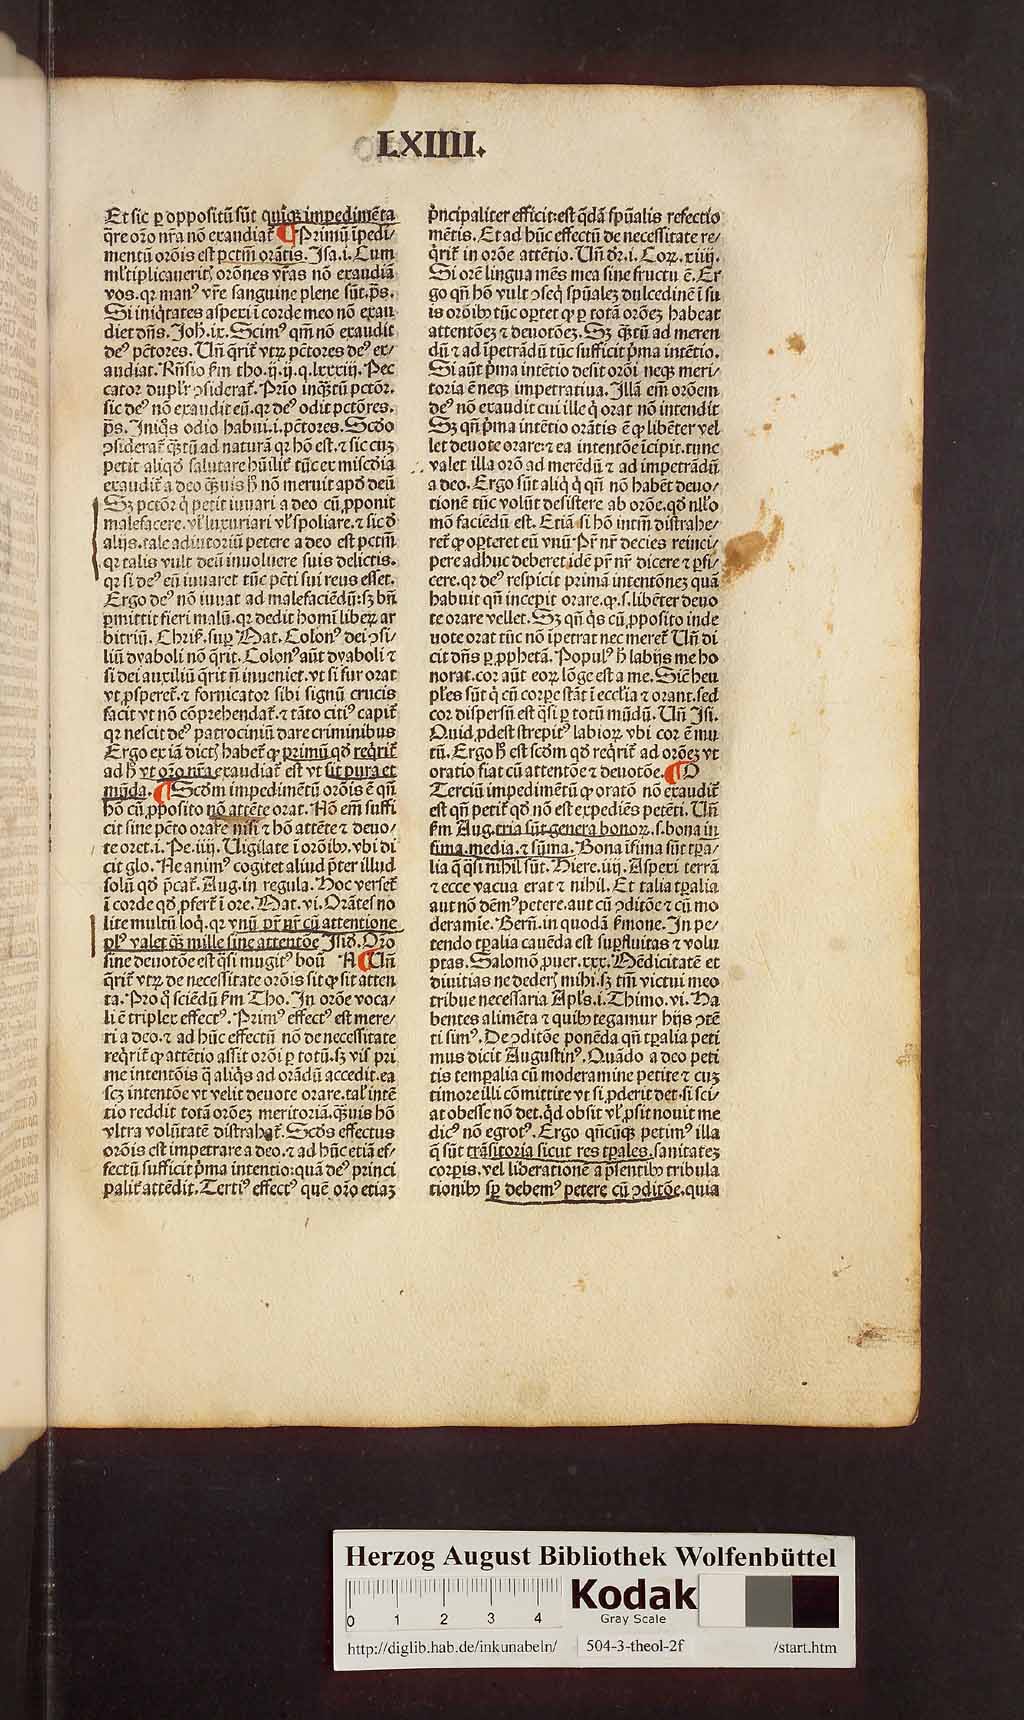 LXIIII.
Et sic ꝑ oppositū sūt quīqꝫ impedimēta
q̄re orō nr̄a nō exaudiat᷑ ¶ Primū īpedi/
mentū orōis est pctm̄ orātis. Isa. i. Cum
ml̓tiplicaueritꝭ orōnes vr̄as nō exaudiā
vos. qꝛ manꝰ vr̄e sanguine plene sūt. p̄s.
Si iniq̇tates aspexi ī corde meo nō exau
diet dn̄s. Joh̄. ix. Scimꝰ qm̄ nō exaudit
deꝰ pctōres. Un̄ q̄rit᷑ vtꝝ pctōres deꝰ ex/
audiat. Rn̄sio ẜm tho. ij. ij. q. lxxxiij. Pec
cator dupl̓r ↄsiderat᷑. Prīo inqꝫtū pctōr.
sic deꝰ nō exaudit eū. qꝛ deꝰ odit pctōres.
p̄s. Iniq̇s odio habui. i. pctōres. Scd̄o
ↄsiderat᷑ qꝫtū ad naturā qꝛ hō est. ⁊ sic cuꝫ
petit aliqd̓ salutare hūilit᷑ tūc ex mīscd̓ia
exaudit᷑ a deo qꝫuis h̄ nō meruit apd̓ deū
Sꝫ pctōr q̇ petit iuuari a deo cū ꝓponit
malefacere. vl̓ luxuriari vl̓ spoliare. ⁊ sic d̓
alijs. tale adiutoriū petere a deo est pctm̄
qꝛ talis vult deū inuoluere suis delictis.
qꝛ si deꝰ eū iuuaret tūc pcti sui reus esset.
Ergo deꝰ nō iuuat ad malefaciēdū: sꝫ bn̄
ꝑmittit fieri malū. qꝛ dedit homī libeꝝ ar
bitriū. Chriſ. suꝑ Mat. Colonꝰ dei ↄsi/
liū dyaboli nō q̄rit. Colonꝰ aūt dyaboli ⁊
si dei auxiliū q̄rit n̄ inueniet. vt si fur orat
vt ꝓsperet᷑. ⁊ fornicator sibi signū crucis
facit vt nō cōprehendat᷑. ⁊ tāto citiꝰ capit᷑
qꝛ nescit deꝰ patrociniū dare criminibus
Ergo ex iā dictꝭ habet᷑ ꝙ primū qd̓ req̇rit᷑
ad h̄ vt orō nr̄a exaudiat᷑ est vt sit pura et
mūda. ¶ Scd̓m impedimētū orōis ē qn̄
hō cū ꝓposito nō attēte orat. Nō em̄ suffi
cit sine pctō orare nisi ⁊ hō attēte ⁊ deuo/
te oret. i. Pe. iiij. Uigilate ī orōibꝰ. vbi di
cit glo. Ne animꝰ cogitet aliud p̄ter illud
solū qd̓ p̄cat᷑. Aug. in regula. Hoc verset᷑
ī corde qd̓ ꝓfert᷑ ī ore. Mat. vi. Orātes no
lite multū loq̇. qꝛ vnū pr̄ nr̄ cū attentione
plꝰ valet qꝫ mille sine attentōe Isid̓. Orō
sine deuotōe est q̄si mugitꝰ boū A ¶ Un̄
q̄rit᷑ vtꝝ de necessitate orōis sit ꝙ sit atten
ta. Pro q̇ sciēdū ẜm Tho. In orōe voca/
li ē triplex effectꝰ. Primꝰ effectꝰ est mere/
ri a deo. ⁊ ad hūc effectū nō de necessitate
req̇rit᷑ ꝙ attētio assit orōi ꝑ totū. sꝫ vis pri
me intentōis q̄ aliq̇s ad orādū accedit. ea
scꝫ intentōe vt velit deuote orare. tal̓ intē
tio reddit totā orōeꝫ meritoriā. qꝫuis hō
vltra volūtatē distrahat᷑. Scd̓s effectus
orōis est impetrare a deo. ⁊ ad hūc etiā ef/
fectū sufficit p̄ma intentio: quā deꝰ princi
palit᷑ attēdit. Tertiꝰ effectꝰ quē orō etiaꝫ
p̄ncipaliter efficit: est q̄dā spūalis refectio
mētis. Et ad hūc effectū de necessitate re/
q̇rit᷑ in orōe attētio. Un̄ dr̄. i. Coꝝ. xiiij.
Si orē lingua mēs mea sine fructu ē. Er
go qn̄ hō vult ↄseq̇ spūaleꝫ dulcedinē ī su
is orōibꝰ tūc oꝑtet ꝙ ꝑ totā orōeꝫ habeat
attentōeꝫ ⁊ deuotōeꝫ. Sꝫ qꝫtū ad meren
dū ⁊ ad īpetrādū tūc sufficit p̄ma intētio.
Si aūt p̄ma intētio desit orōi neqꝫ meri/
toria ē neqꝫ impetratiua. Illā em̄ orōem
deꝰ nō exaudit cui ille q̇ orat nō intendit
Sꝫ qn̄ p̄ma intētio orātis ē ꝙ libēter vel
let deuote orare: ⁊ ea intentōe īcipit. tunc
valet illa orō ad merēdū ⁊ ad impetrādū
a deo. Ergo sūt aliq̇ q̇ qn̄ nō habēt deuo/
tionē tūc volūt desistere ab orōe. qd̓ nll̓o
mō faciēdū est. Etiā si hō intm̄ distrahe/
ret᷑ ꝙ oꝑteret eū vnū Pr̄ nr̄ decies reinci/
pere adhuc deberet idē pr̄ nr̄ dicere ⁊ ꝑfi/
cere. qꝛ deꝰ respicit primā intentōneꝫ quā
habuit qn̄ incepit orare. ꝙ. s. libēter deuo
te orare vellet. Sꝫ qn̄ q̇s cū ꝓposito inde
uote orat tūc nō īpetrat nec meret᷑ Un̄ di
cit dn̄s ꝑ ꝓphetā. Populꝰ h̄ labijs me ho
norat. cor aūt eoꝝ lōge est a me. Sic heu
pl̓es sūt q̇ cū corꝑe stāt ī eccl̓ia ⁊ orant. sed
cor dispersū est q̄si ꝑ totū mūdū. Un̄ Isi.
Quid ꝓdest strepitꝰ labioꝝ vbi cor ē mu
tū. Ergo h̄ est scd̓m qd̓ req̇rit᷑ ad orōeꝫ vt
oratio fiat cū attentōe ⁊ deuotōe. ¶ O
Terciū impedimētū ꝙ oratō nō exaudit᷑
est qn̄ petit᷑ qd̓ nō est expediēs petēti. Un̄
ẜm Aug. tria sūt genera bonoꝝ. s. bona in
fima. media. ⁊ sūma. Bona īfima sūt tꝑa/
lia q̄ q̄si nihil sūt. Hiere. iiij. Aspexi terrā
⁊ ecce vacua erat ⁊ nihil. Et talia tꝑalia
aut nō demꝰ petere. aut cū ↄditōe ⁊ cū mo
deramīe. Bern̄. in quodā ẜmone. In pe/
tendo tꝑalia cauēda est suꝑfluitas ⁊ volu
ptas. Salomō ꝓuer. xxx. Mēdicitatē et
diuitias ne dederꝭ mihi. sꝫ tm̄ victui meo
tribue necessaria Apl̓s. i. Thimo. vi. Ha
bentes alimēta ⁊ quibꝰ tegamur hijs ↄtē
ti simꝰ. De ↄditōe ponēda qn̄ tꝑalia peti
mus dicit Augustinꝰ. Quādo a deo peti
tis temꝑalia cū moderamine petite ⁊ cuꝫ
timore illi cōmittite vt si ꝓderit det. si sci/
at obesse nō det. q̇d obsit vl̓ ꝓsit nouit me
dicꝰ nō egrotꝰ. Ergo qn̄cūqꝫ petimꝰ illa
q̄ sūt trāsitoria sicut res tꝑales. sanitateꝫ
corꝑis. vel liberationē a p̄sentibꝰ tribula
tionibꝰ sꝑ debemꝰ petere cū ↄditōe. quia
Herzog August Bibliothek Wolfenbüttel
0 1 2 3 4
Kodak
Gray Scale
http://diglib.hab.de/inkunabeln/ 504-3-theol-2f /start.htm